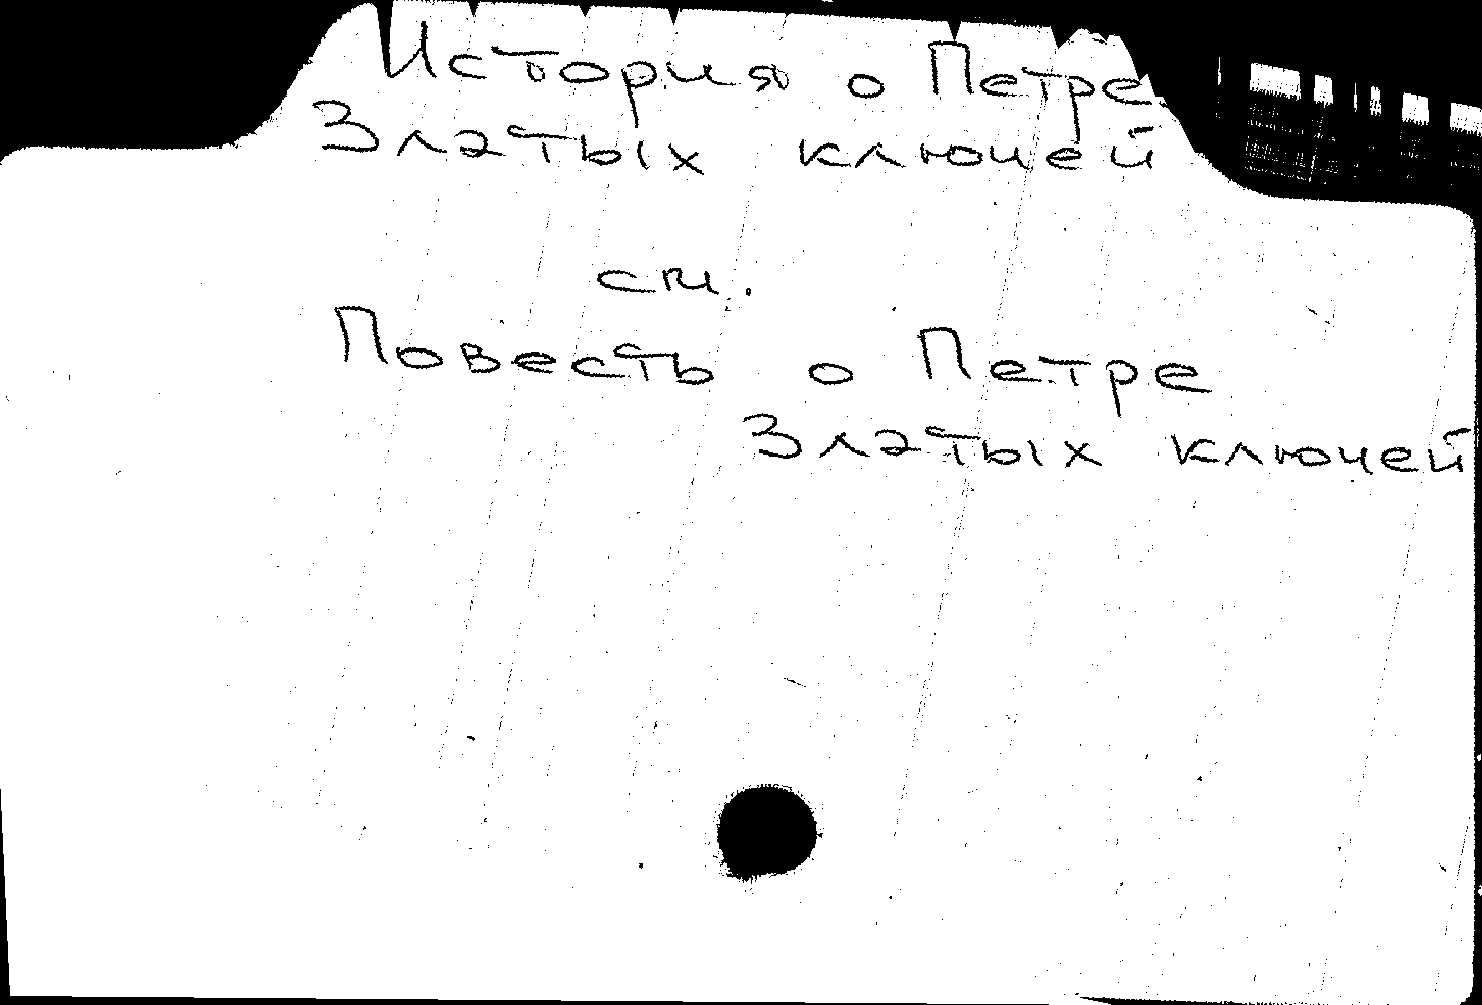 История о Петре
Златых ключей
см.
Повесть о Петре
Златых ключей